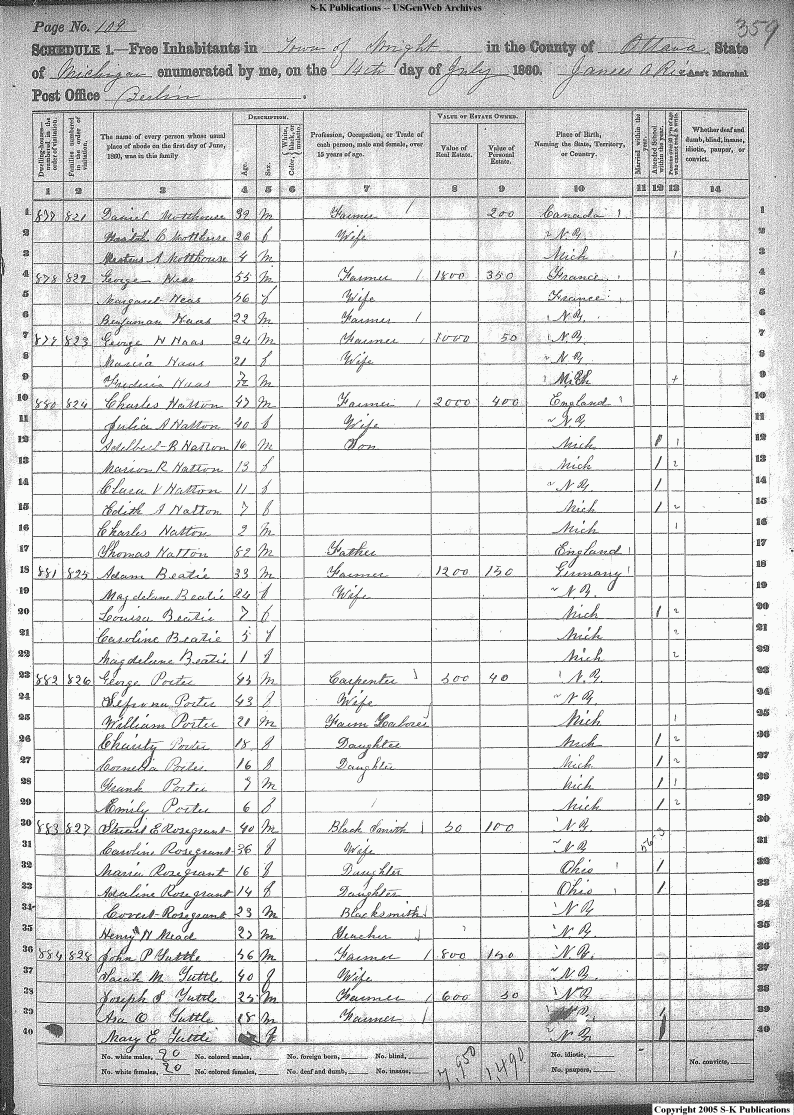 S-K Publications -- USGenWeb Archives
Page No. 109 359
SCHEDULE 1.—Free Inhabitants in Town of Wright in the County of Ottawa State
of Michigan enumerated by me, on the 14th day of July 1860. James A Ass't Marshal
Post Office Berlin.
DESCRIPTION. VALUE OF ESTATE OWNED.
Dwelling-houses—numbered in the order of visitation. Families numbered in the order of visitation. The name of every person whose usual place of abode on the first day of June, 1860, was in this family Age. Sex. Color, White, black, or mulatto. Profession, Occupation, or Trade of each person, male and female, over 15 years of age. Value of Real Estate. Value of Personal Estate. Place of Birth, Naming the State, Territory, or Country. Married within the year. Attended School within the year. Whether deaf and dumb, blind, insane, idiotic, pauper, or convict.
1 2 3 4 5 6 7 8 9 10 11 12 13 14
1 877 821 Daniel Motthouse 32 m Farmer / 200 Canada 1
2 C Motthouse 26 f Wife N.Y. 2
3 A Motthouse 4 m Mich 1 3
4 878 822 George Haas 55 m Farmer / 1800 350 France 4
5 Margaret Haas 56 f Wife France 5
6 Benjaman Haas 22 m Farmer / N.Y. 6
7 879 823 George H Haas 24 m Farmer / 1000 50 N.Y. 7
8 Maria Haas 21 f Wife N.Y. 8
9 Haas m Mich + 9
10 880 824 Charles Hatton 47 m Farmer / 2000 400 England 10
11 Julia A Hatton 40 f Wife N.Y. 11
12 Adelbert R Hatton 16 m Son Mich 1 1 12
13 Marion R Hatton 13 f Mich 1 2 13
14 Clara V Hatton 11 f N.Y. 1 14
15 Edith A Hatton 7 f Mich 1 2 15
16 Charles Hatton 2 m Mich 1 16
17 Thomas Hatton 82 m Father England 17
18 881 825 Adam Beatie 33 m Farmer / 1200 150 Germany 18
19 Magdelane Beatie 24 f Wife N.Y. 19
20 Louisa Beatie 7 f Mich 1 2 20
21 Caroline Beatie 5 f Mich 2 21
22 Magdelane Beatie 1 f Mich 2 22
23 882 826 George Porter 45 m Carpenter 300 40 N.Y. 23
24 Porter 43 f Wife N.Y. 24
25 William Porter 21 m Farm Laborer Mich 1 25
26 Charity Porter 18 f Daughter Mich 1 2 26
27 Cornelia Porter 16 f Daughter Mich 1 2 27
28 Frank Porter 9 m Mich 1 1 28
29 Emily Porter 6 f Mich 1 2 29
30 883 827 Stuart E Rosegrant 40 m Black Smith 50 100 N.Y. 30
31 Caroline Rosegrant 36 f Wife N.Y. 31
32 Maria Rosegrant 16 f Daughter Ohio 1 32
33 Adaline Rosegrant 14 f Daughter Ohio 1 33
34 Covert Rosegrant 23 m Blacksmith N.Y. 34
35 Henry H Mead 27 m Teacher N.Y. 35
36 884 828 John P Tuttle 46 m Farmer / 800 150 N.Y. 36
37 Sarah M Tuttle 40 f Wife N.Y. 37
38 Joseph S Tuttle 25 m Farmer / 600 50 N.Y. 38
39 Asa O Tuttle 18 m Farmer / 1 39
40 Mary E Tuttle f N.Y. 1 40
No. white males, 20 No. colored males, No. foreign born, No. blind, 7,950 1,490 No. idiotic,
No. white females, 20 No. colored females, No. deaf and dumb, No. insane, No. paupers, No. convicts,
Copyright 2005 S-K Publications